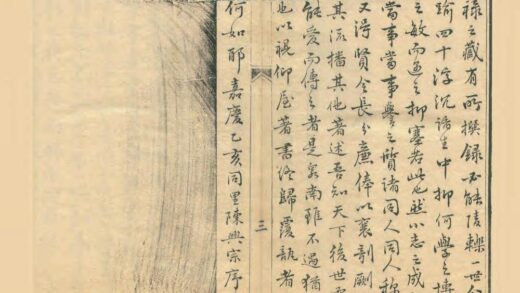 祿之藏有所撰録必能陵轢一世人
踰四十浮沉諸生中抑何學之博
之敏而遇之抑塞若此也然小志之成
當事當事譽之質諸同人同人稱
又得賢令長分廉俸以襄剞劂
其流播其他著述吾知天下後世
能愛而傳之者是泉南雖不遇猶
也以視仰屋著書終歸覆瓿者
三
何如耶嘉慶乙亥同里陳興宗序